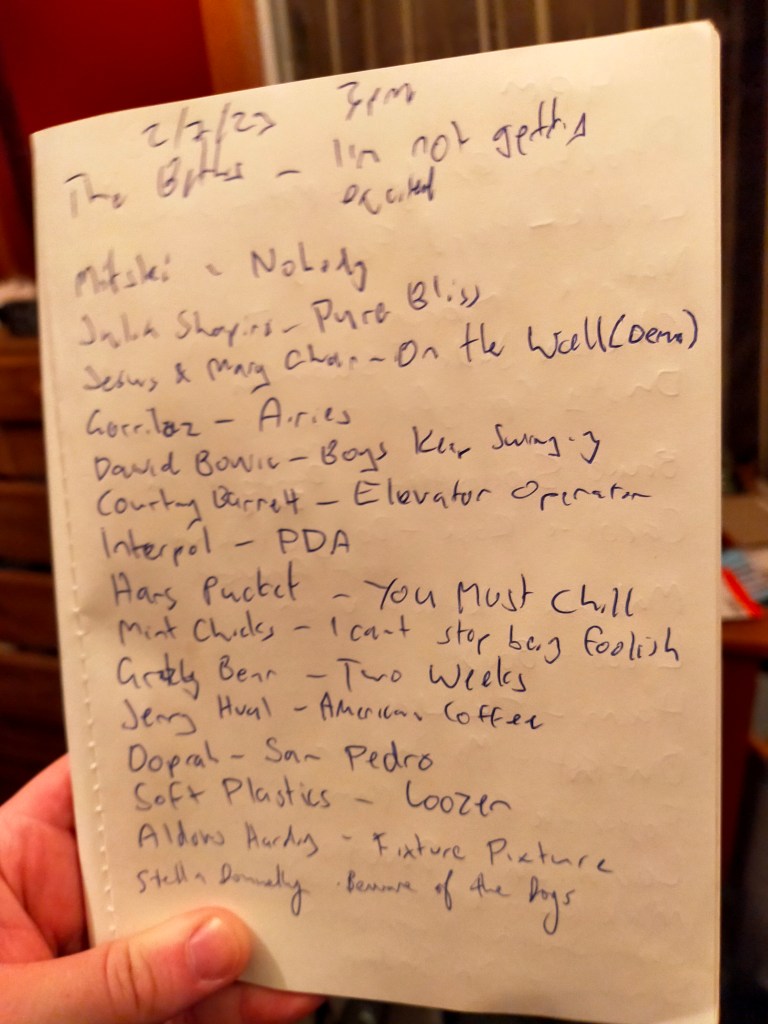 2/7/23 3pm
The Beths - I'm not getting
excited
Mitski - Nobody
Julia Shapiro - Pure Bliss
Jesus & Mary Chain - On the Wall (Demo)
Gorrilaz - Airies
David Bowie - Boys Keep Swinging
Courtney Barrett - Elevator Operator
Interpol - PDA
Hans Pucket - You Must Chill
Mint Chicks - I cant stop being foolish
Grizzly Bear - Two Weeks
Jenny Hval - American Coffee
Doprah - San Pedro
Soft Plastics - Loozer
Aldous Harding - Fixture Picture
Stella Donnelly - Beware of the Dogs